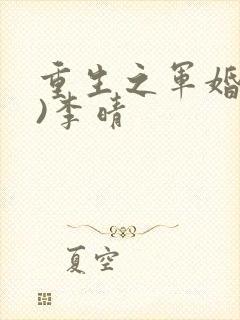 重生之军婚
)李晴
夏空